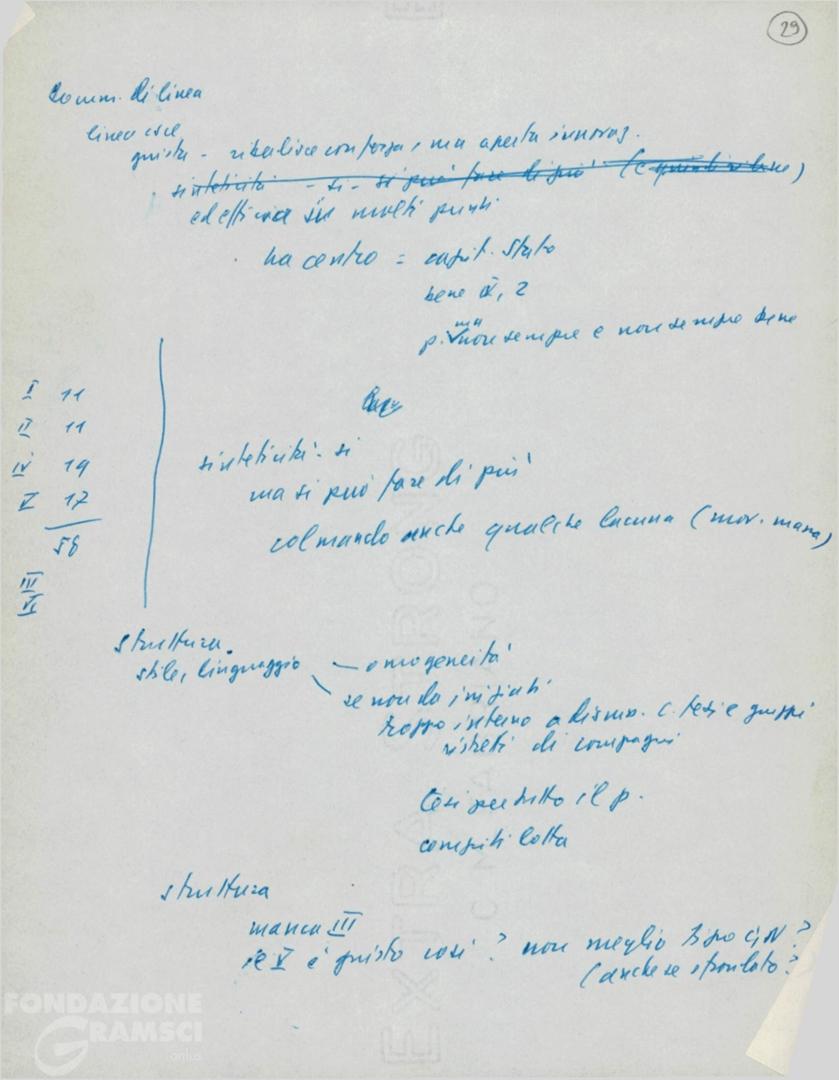 29
Comm. di linea
linea esce
giusta - ribadisce con forza, ma aperta innovaz.
sinteticità - si - si può fare di più (e
ed efficace su molti punti
ha centro = capit. Stato
bene IV, 2
p. ma non sempre e non sempre bene
I 11
II 11
IV 19
V 17
58
III
VI
sinteticità - si
ma si può fare di più
colmando anche qualche lacuna (mov. massa)
struttura.
stile, linguaggio — omogeneità
se non da iniziati
troppo interno a c. tesi e gruppi
ristreti di compagni
tesi per tutto il p.
compiti lotta
struttura
manca III
il V è giusto così? non meglio tipo
(anche se sfrondato?
FONDAZIONE
GRAMSCI
onlus
EXTRA STRONG